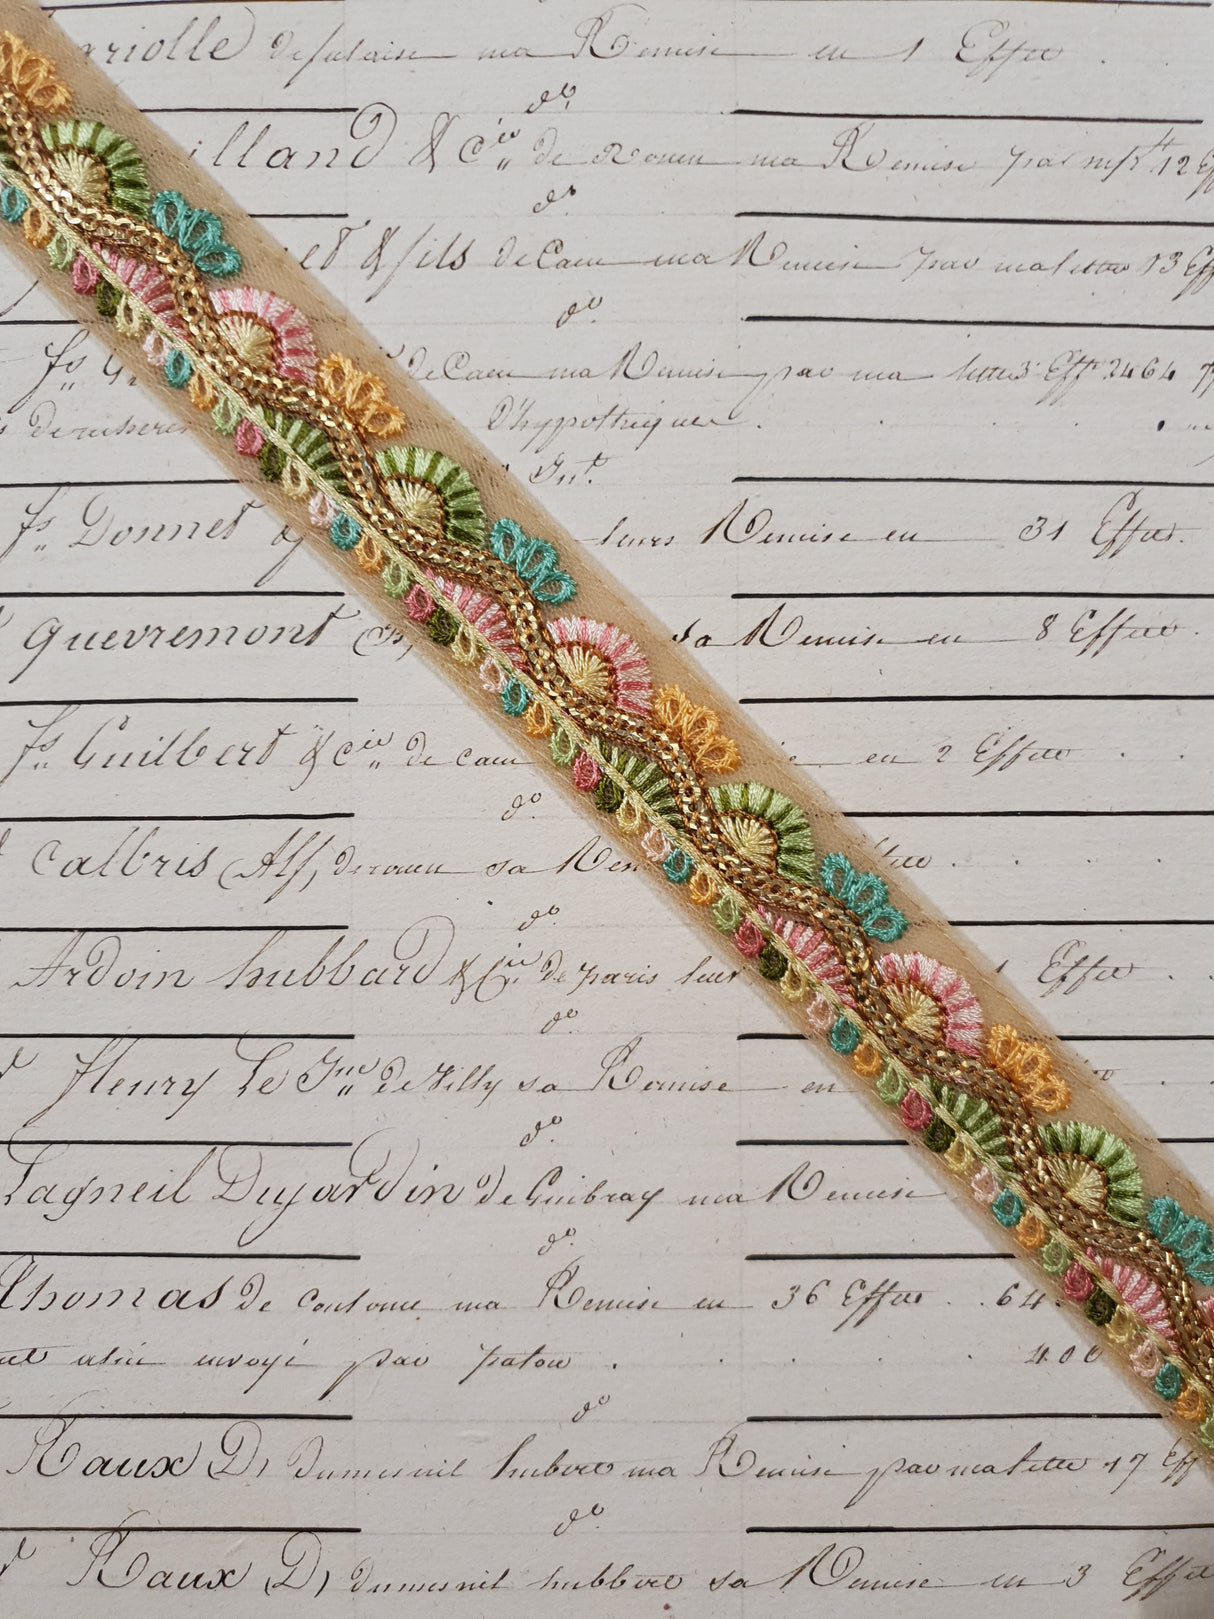 ariolle de falaise ma Remise en 1 Effet
do
illand & Cie de Rouen ma Remise par 12
do
et & fils de Caen ma Remise par ma lettre 13 Eff
do
fs de Caen ma Remise par ma lettre 3 Effts 2464
D'hypothèques
Int.
fs Donnet leurs Remise en 31 Effets.
Guevremont sa Remise en 8 Effets.
fs Guilbert & Cie de Caen en 2 Effets
do
Calbris (Alf) de rouen sa Rem
do
Ardoin hubbard & Cie de paris leur 1 Effet
do
fleury Le Jne de Tilly sa Remise en
do
Lagneil Dujardin de Guibray ma Remise
do
Thomas de ma Remise en 36 Effets 64
envoyé par 400
do
Raux D, dumesnil hubert ma Remise par ma lettre 17 Eff
do
Raux D, dumesnil sa Remise en 3 Effets